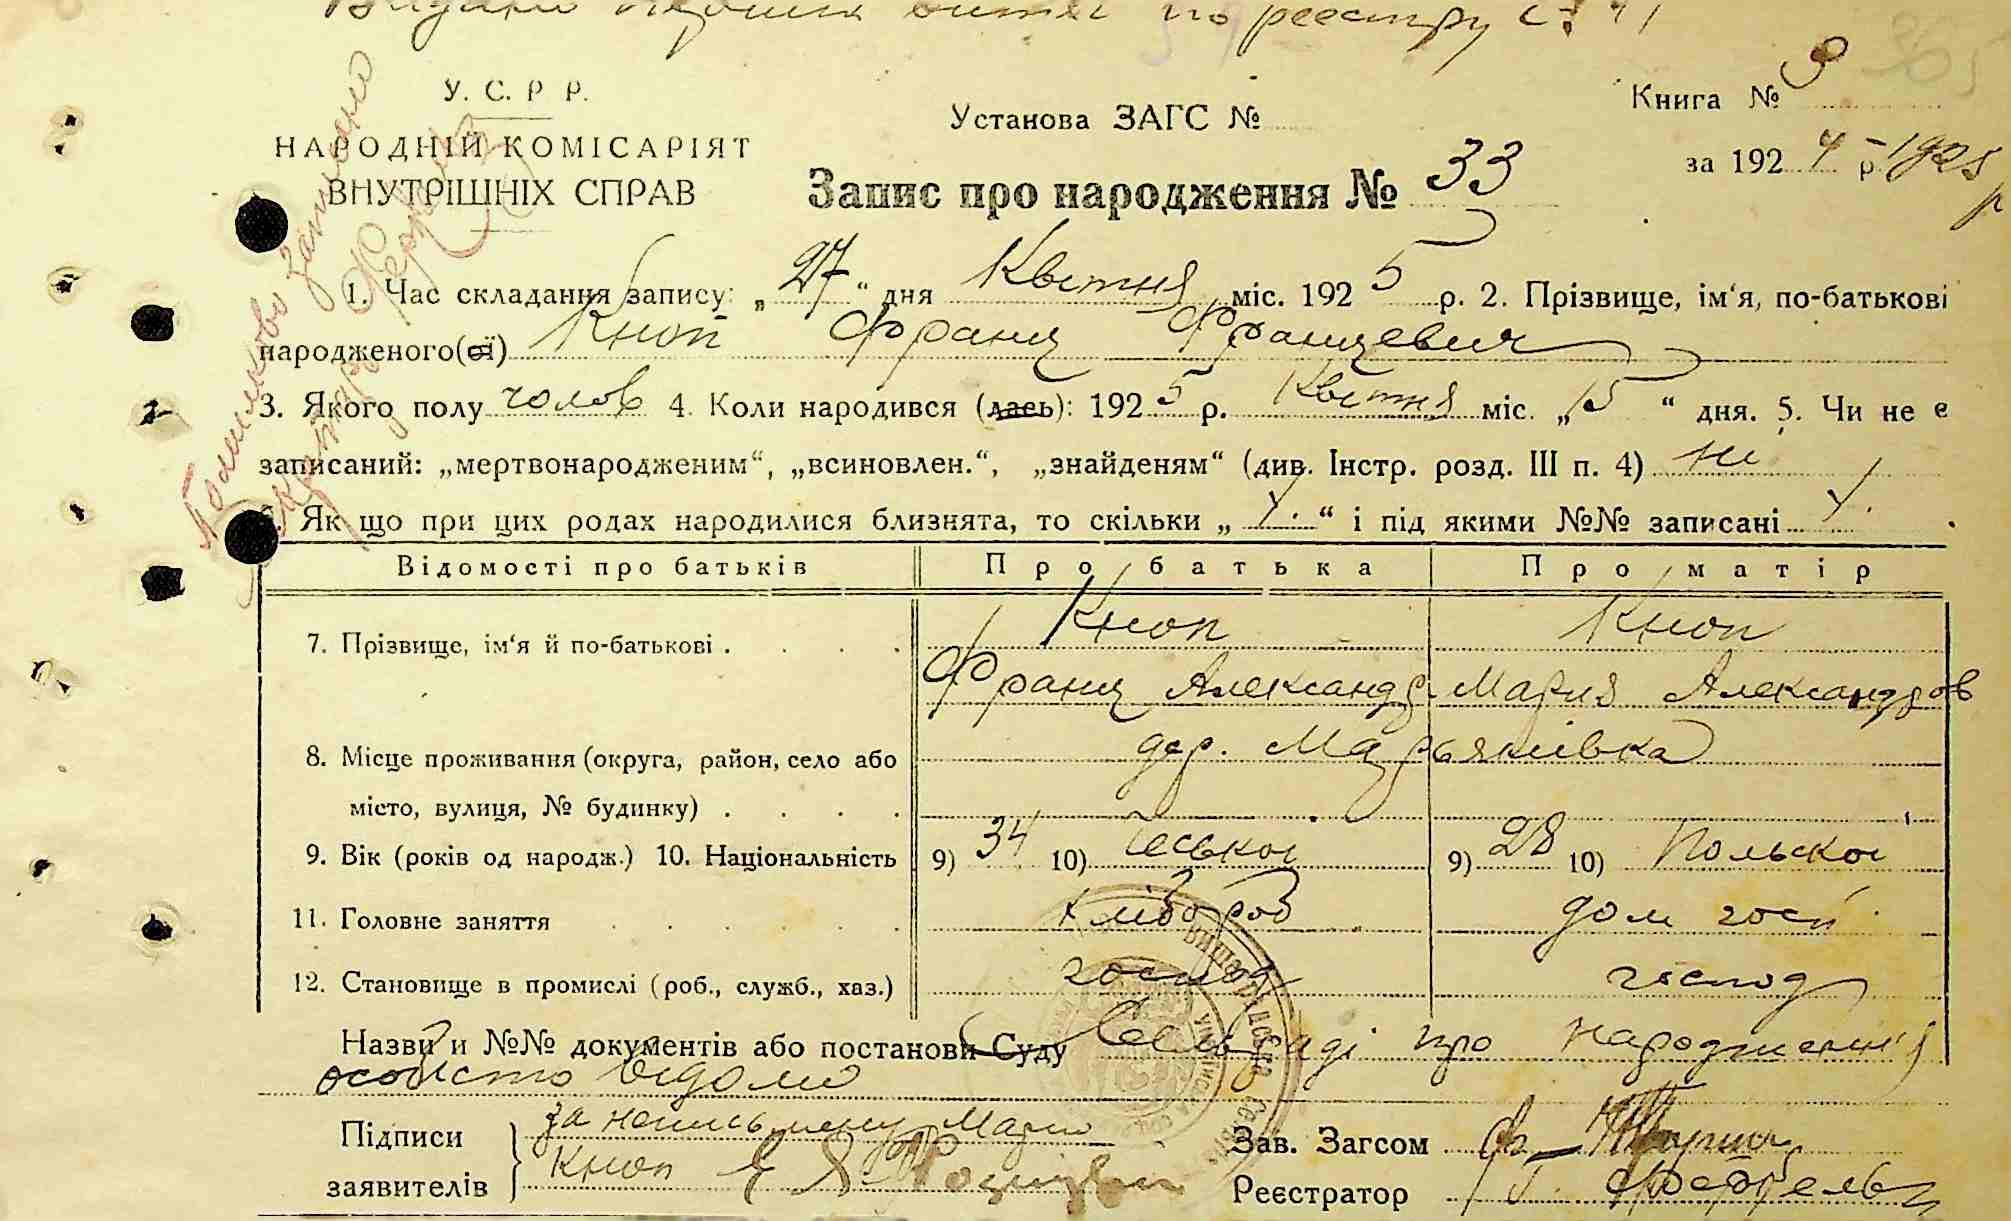 по реестру
У. С. Р Р.
НАРОДНІЙ КОМІСАРІЯТ
ВНУТРІШНІХ СПРАВ
Установа ЗАГС №
Книга № 9
за 1924 р - 1925 р
Запис про народження № 33
1. Час складання запису: „27“ дня Квітня міс. 1925 р. 2. Прізвище, ім‘я, по-батькові
народженого(ої) Кноп Франц Францевич
3. Якого полу чолов 4. Коли народився (лась): 1925 р. Квітня міс. „15“ дня. 5. Чи не є
записаний: „мертвонародженим“, „всиновлен.“, „знайденям“ (див. Інстр. розд. III п. 4) ні
Як що при цих родах народилися близнята, то скільки „ “ і під якими №№ записані
Відомості про батьків Про батька Про матір
7. Прізвище, ім‘я й по-батькові . Кноп Кноп
Франц Александр. Мария Александров
8. Місце проживання (округа, район, село або дер. Марьянівка
місто, вулиця, № будинку)
9. Вік (років од народж.) 10. Національність 9) 34 10) Чеської 9) 28 10) Польскої
11. Головне заняття хлібороб дом госп
12. Становище в промислі (роб., служб., хаз.) господ господ
Назви и №№ документів або постанови Суду Сельради про народження
особисто відомо
Підписи заявителів за неписьмену Марію
Кноп
Зав. Загсом
Реєстратор